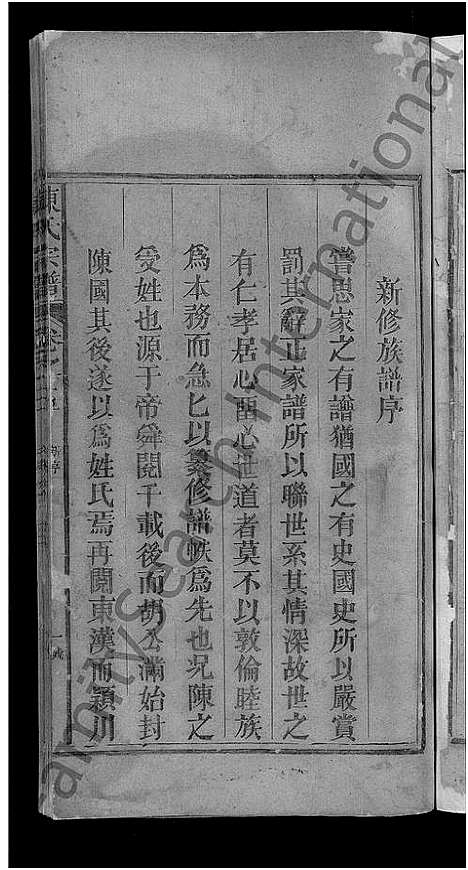 新修族譜序
嘗思家之有譜猶國之有史國史所以嚴賞
罰其辭正家譜所以聯世系其情深故世之
有仁孝居心畱心世道者莫不以敦倫睦族
爲本務而急匕以纂修譜帙爲先也况陳之
受姓也源于帝舜閱千載後而胡公滿始封
陳國其後遂以爲姓氏焉再閱東漢而潁川
陳氏宗譜